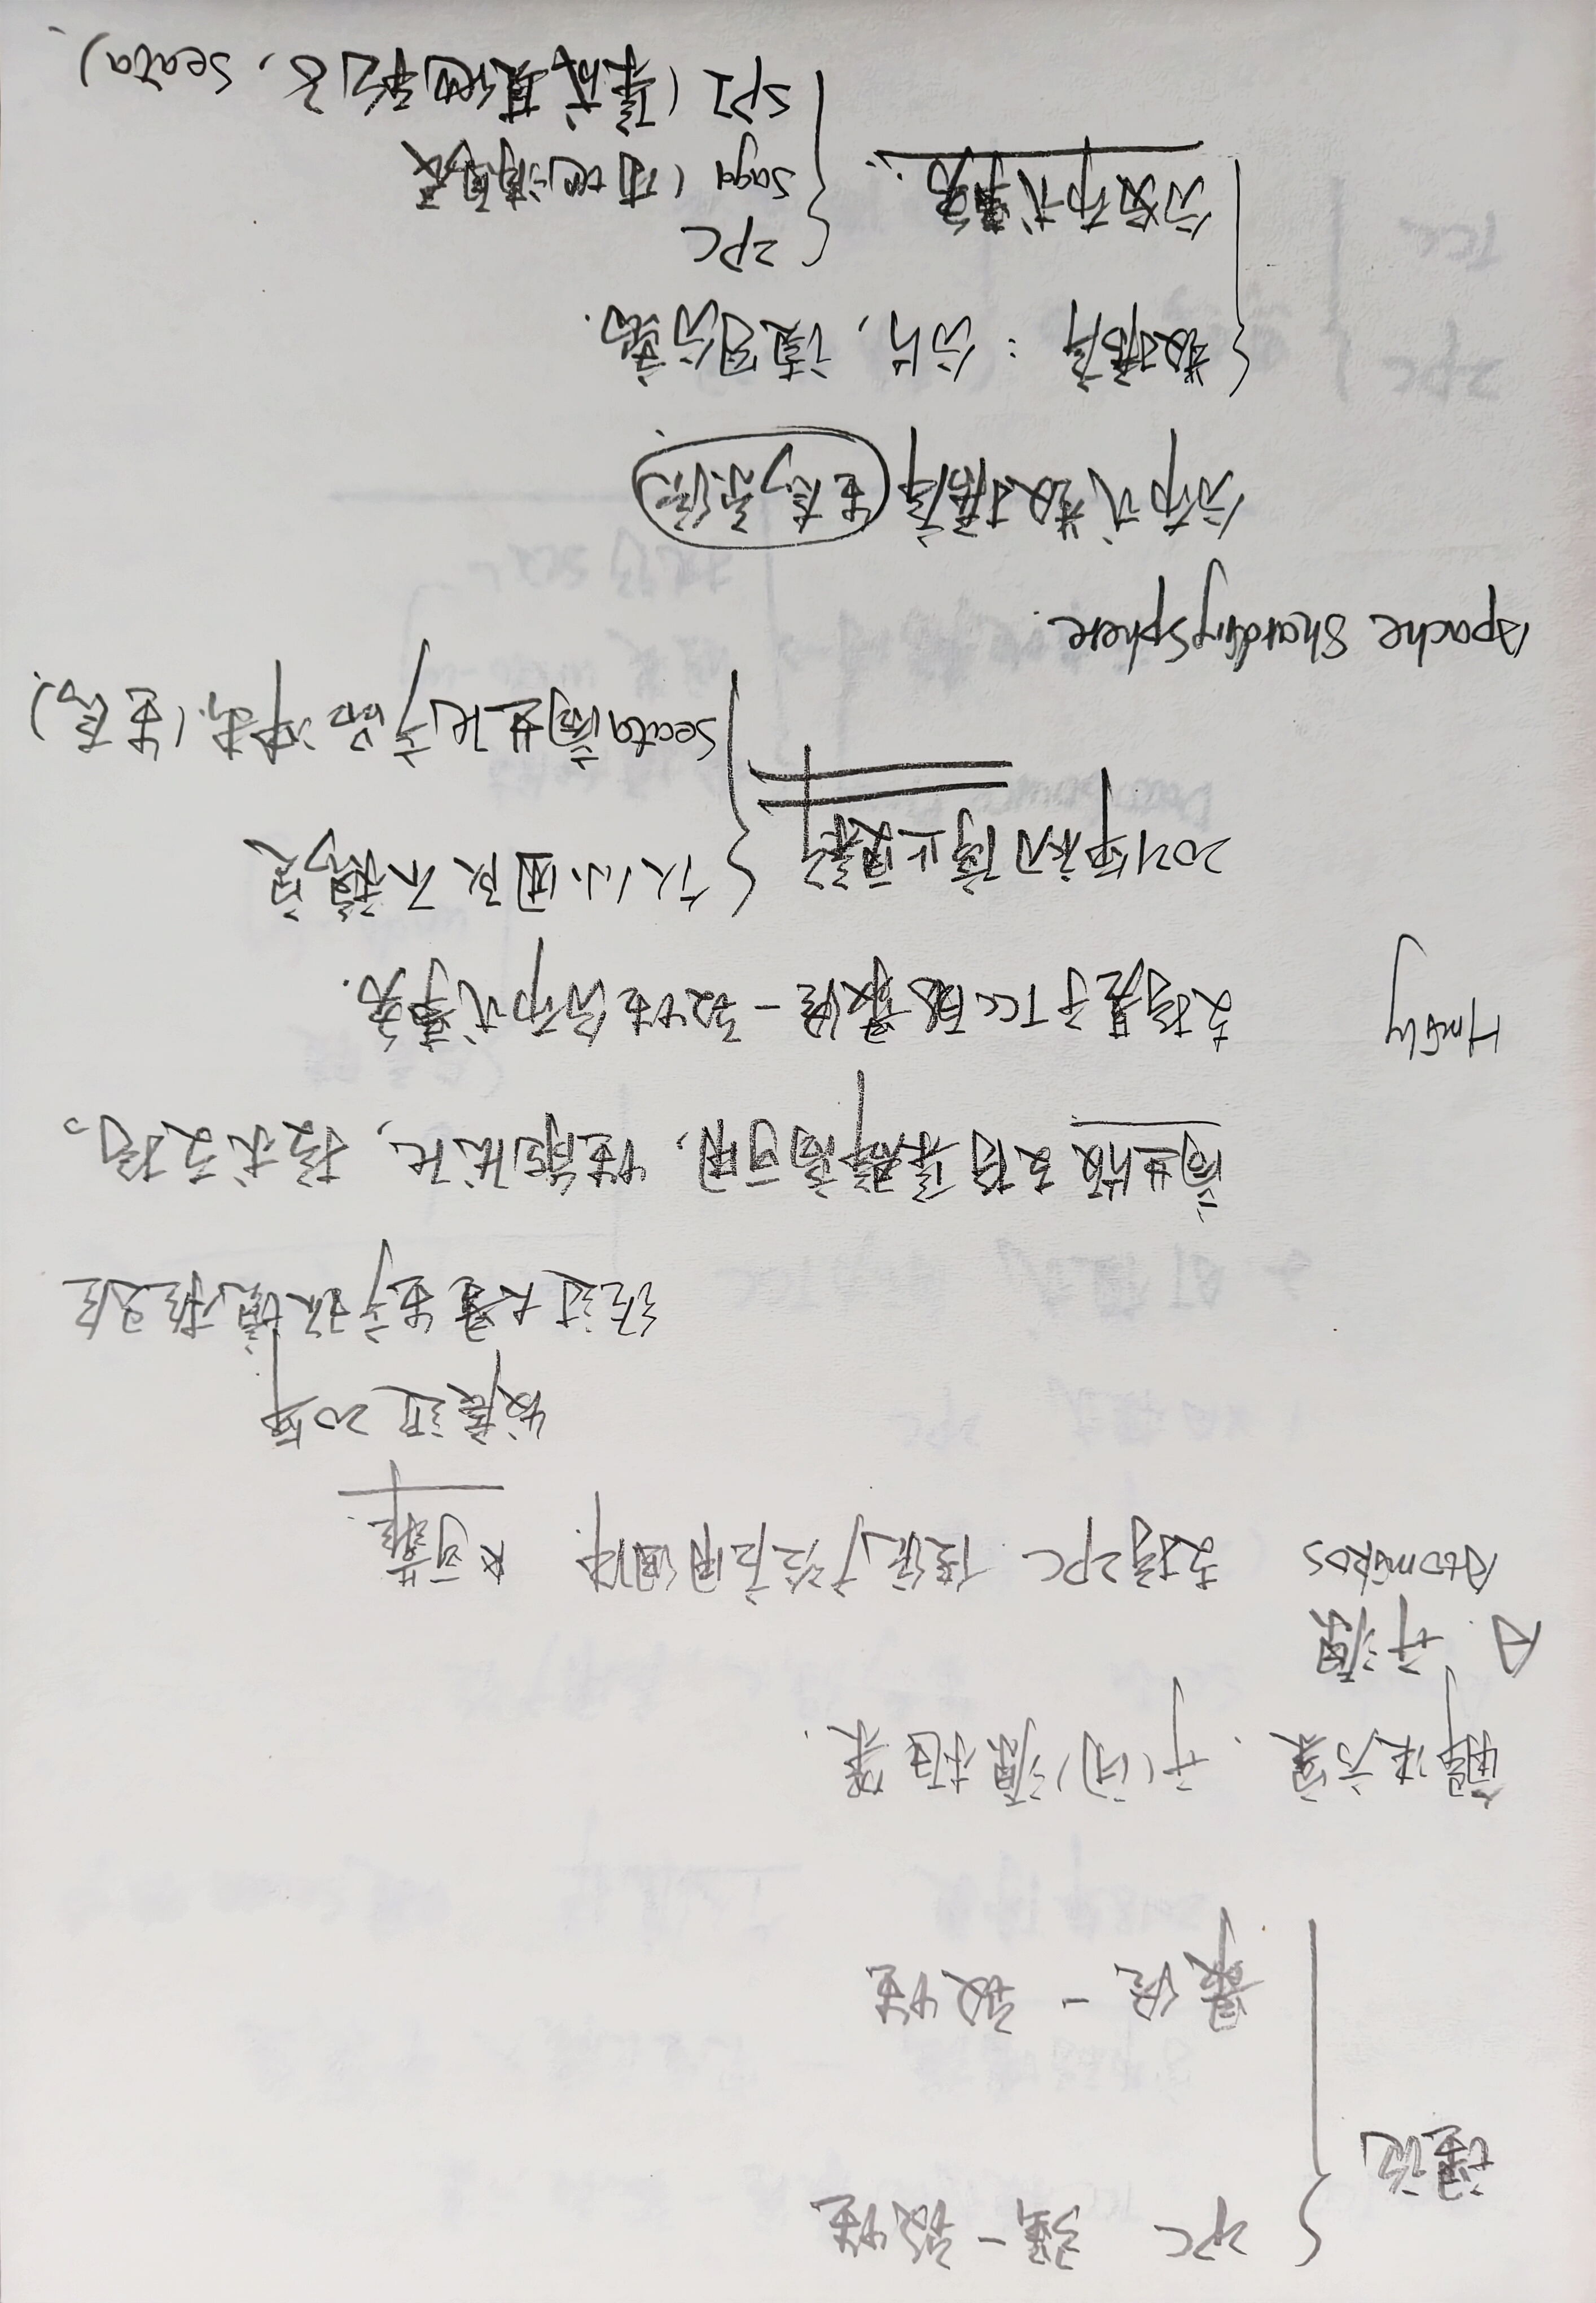 理论
2PC 强一致性
最终一致性
解决方案、开(闭)源框架.
A. 开源
Atomikos 支持2PC. 传统广泛应用组件. 可靠.
发展近20年.
经过大量生产环境检验
商业版支持集群高可用, 性能优化, 技术支持。
Hmily 支持基于TCC的最终一致性分布式事务.
2021年初停止更新
个人/小团队不稳定
Seata商业化产品冲击(生态)、
Apache ShardingSphere.
分布式数据库生态系统、
数据库: 分片, 读写分离.
分布式事务.
2PC
Saga (本地消息表
SPI (集成其他轮子, Seata)、